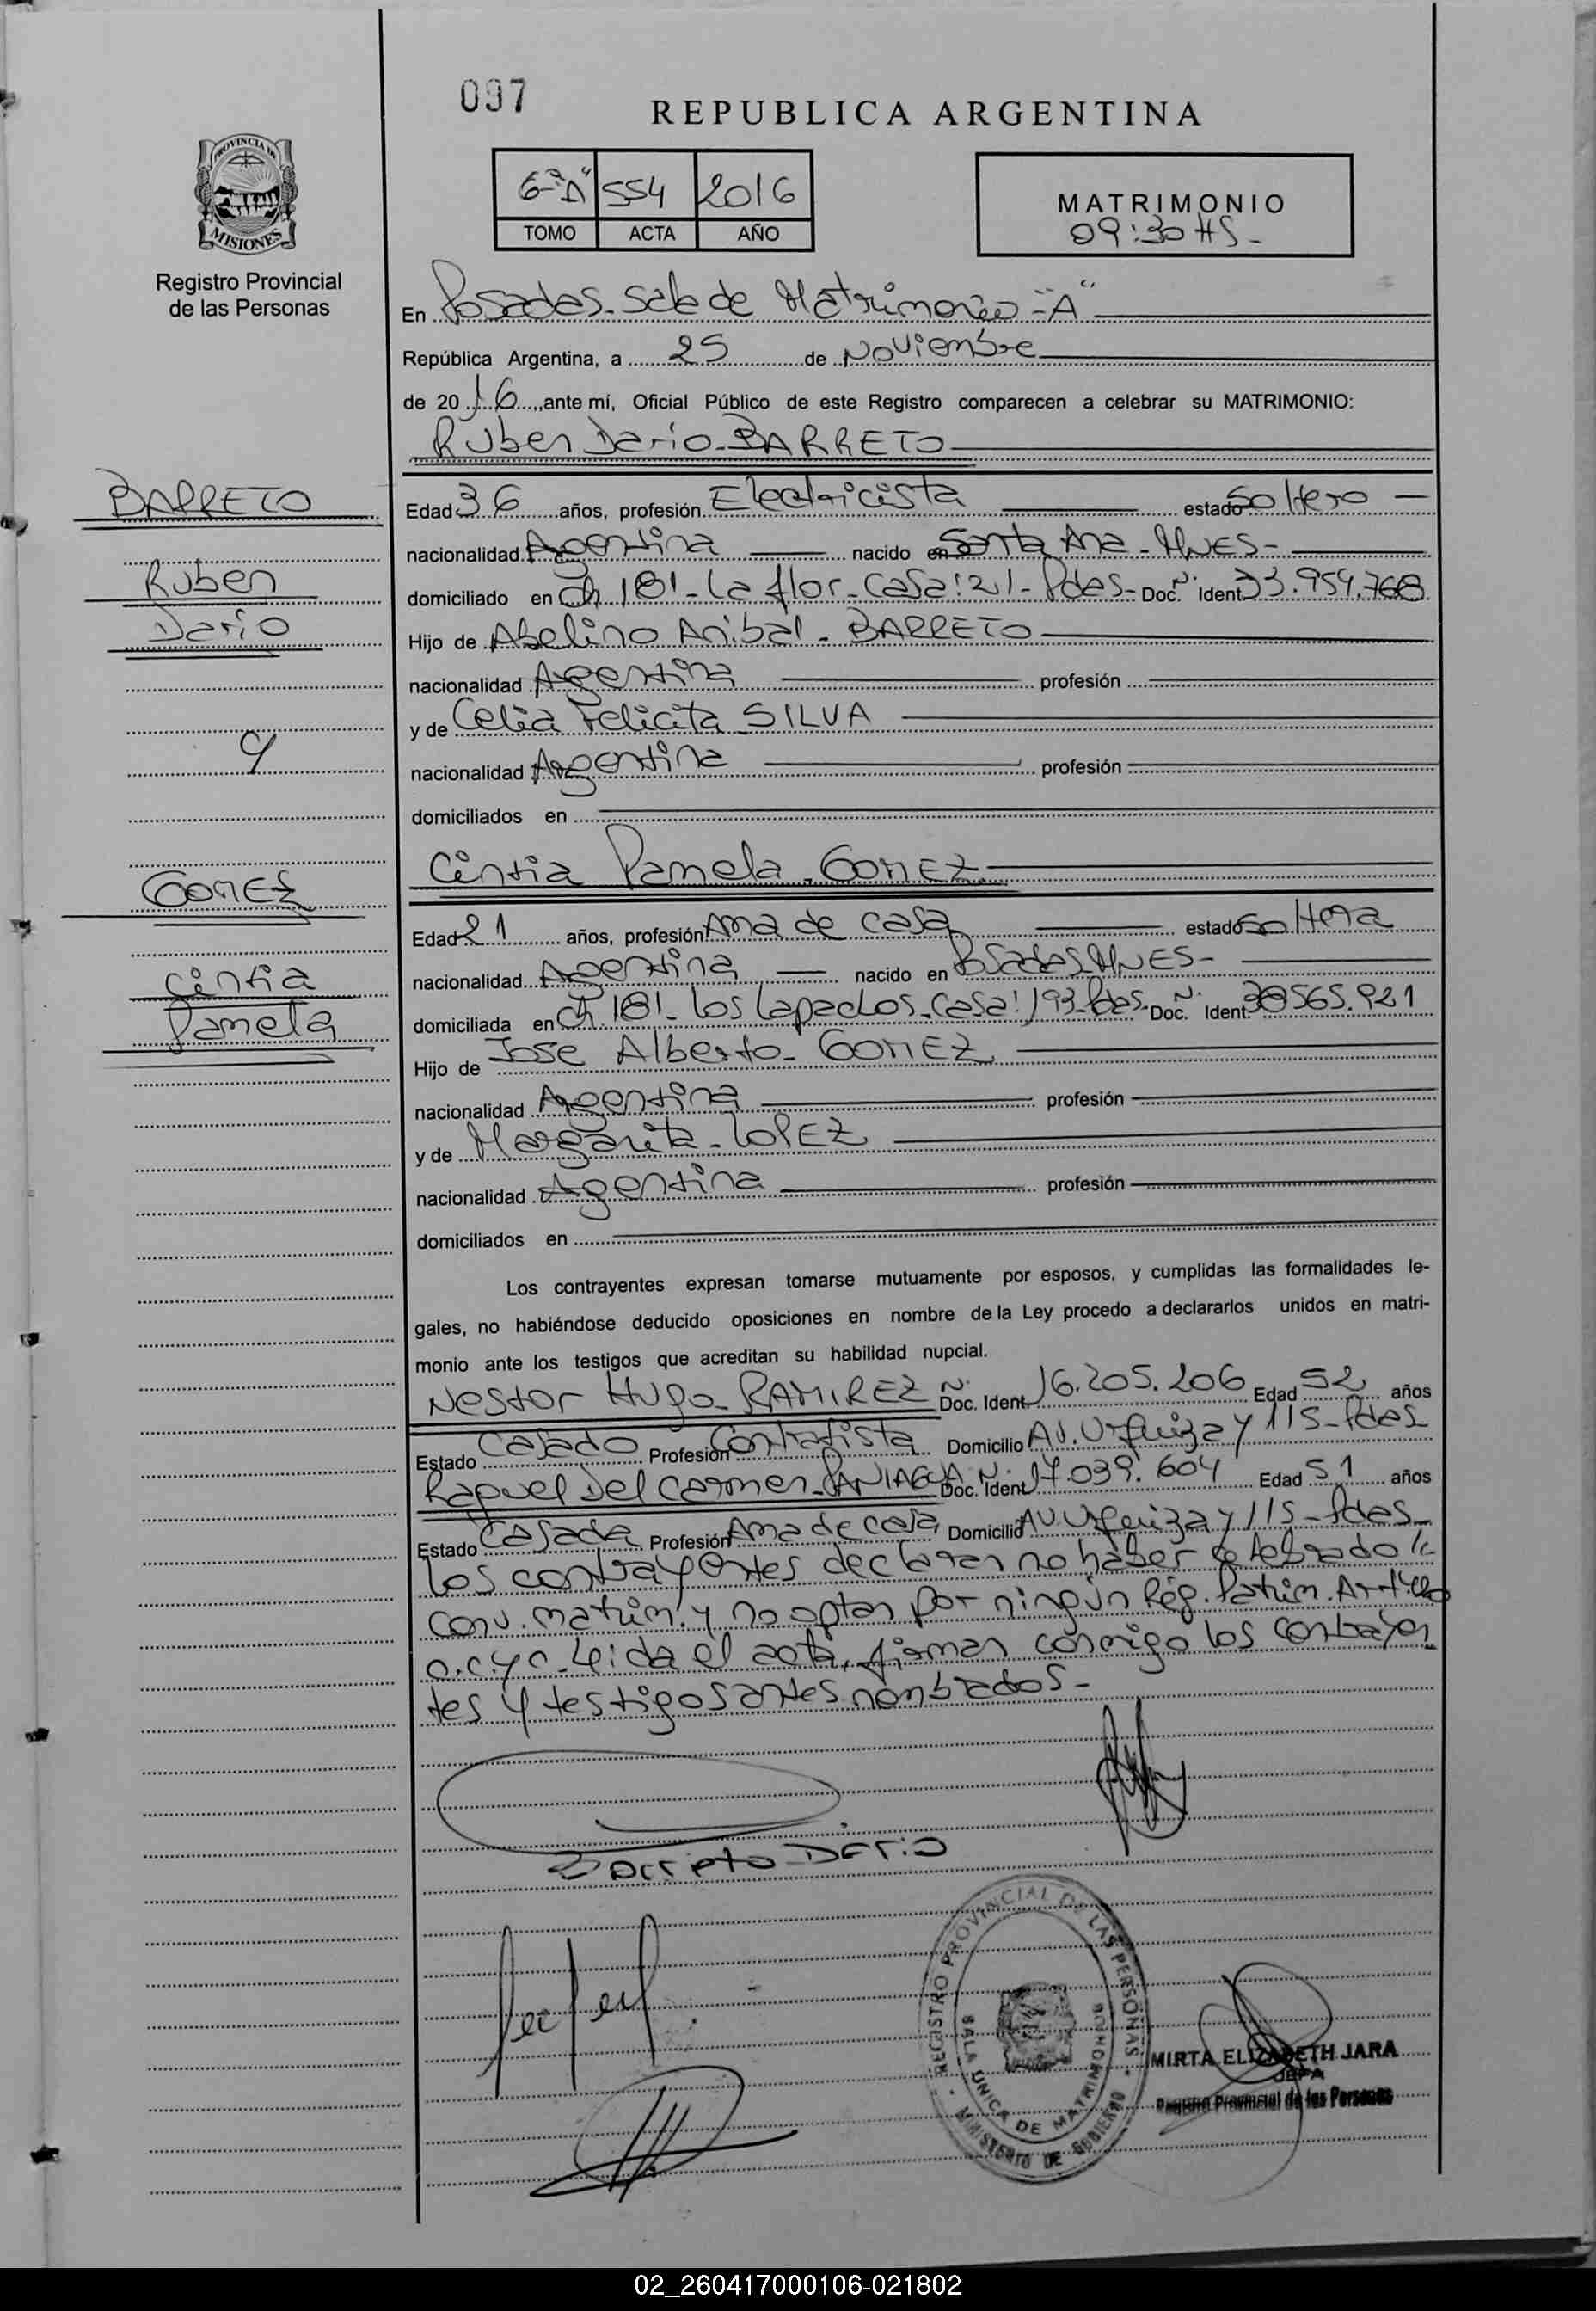 097
REPUBLICA ARGENTINA
PROVINCIA DE
MISIONES
Registro Provincial
de las Personas
6º "A" 554 2016
TOMO ACTA AÑO
MATRIMONIO
09:30 HS-
En Posadas-Sala de Matrimonio-"A"
República Argentina, a 25 de Noviembre
de 2016, ante mí, Oficial Público de este Registro comparecen a celebrar su MATRIMONIO:
Ruben Dario-BARRETO
BARRETO
Ruben
Dario
y
GOMEZ
Cintia
Pamela
Edad 36 años, profesión Electricista estado Soltero
nacionalidad Argentina nacido en Santa Ana-Mnes-
domiciliado en Ch 181-La flor-Casa:21-Pdas- Doc. Nº Ident 33.959.768
Hijo de Abelino Anibal-BARRETO
nacionalidad Argentina profesión
y de Celia Felicita SILVA
nacionalidad Argentina profesión
domiciliados en
Cintia Pamela-GOMEZ
Edad 21 años, profesión Ama de casa estado Soltera
nacionalidad Argentina nacido en Posadas Mnes-
domiciliada en Ch 181-Los Lapachos-Casa:193-Pdas- Doc. Nº Ident. 38565.921
Hijo de Jose Alberto-GOMEZ
nacionalidad Argentina profesión
y de Margarita-LOPEZ
nacionalidad Argentina profesión
domiciliados en
Los contrayentes expresan tomarse mutuamente por esposos, y cumplidas las formalidades le-
gales, no habiéndose deducido oposiciones en nombre de la Ley procedo a declararlos unidos en matri-
monio ante los testigos que acreditan su habilidad nupcial.
Nestor Hugo-RAMIREZ Nº Doc. Ident 16.205.206 Edad 52 años
Estado Casado Profesión Contratista Domicilio Av. Urquiza y 115-Pdas
Raquel Del Carmen-PANIAGUA Nº Doc. Ident 17.039.604 Edad 51 años
Estado Casada Profesión Ama de casa Domicilio Av. Urquiza y 115-Pdas-
Los contrayentes declaran no haber celebrado
conv. matrim. y no optan por ningún Rég. Patrim. Art
C.C.y C-Leida el acta, firman conmigo los contrayen
tes y testigos antes nombrados-
Barreto Dario
REGISTRO PROVINCIAL DE LAS PERSONAS
SALA UNICA DE MATRIMONIOS
MINISTERIO DE GOBIERNO
MIRTA ELIZABETH JARA
JEFA
Registro Provincial de las Personas
02_260417000106-021802